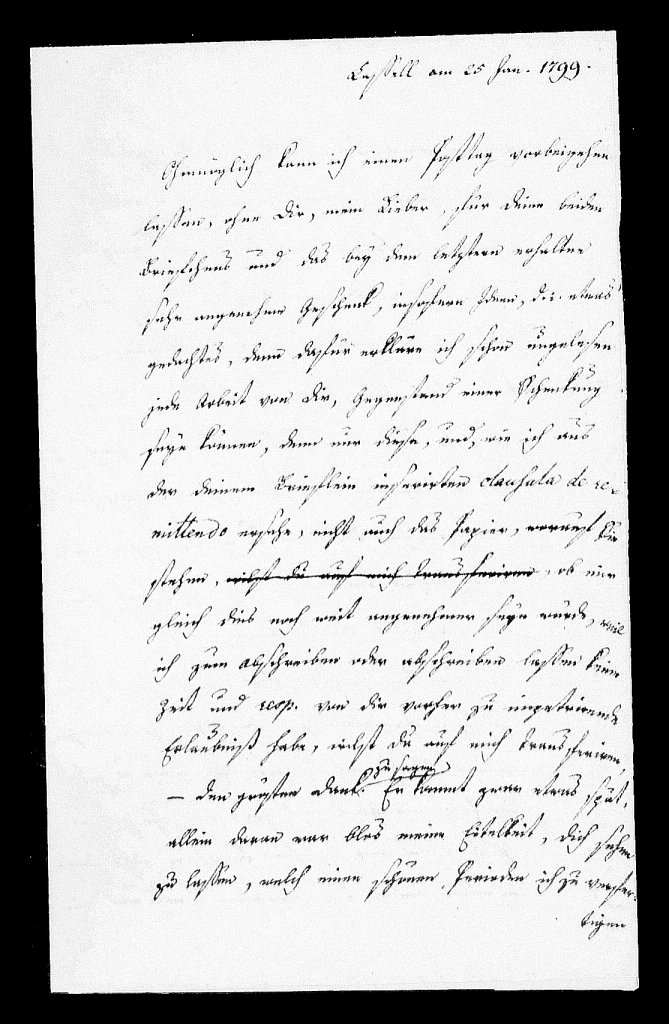 Cassell am 25 Jan. 1799.
Ohnmöglich kann ich einen Posttag vorbeigehen
lassen, ohne Dir, mein Lieber, für deine beiden
Briefchens und das bey dem letztern erhaltene
sehr angenehme Geschenk, insofern Ideen, d. i. etwas
gedachtes, denn dafür erkläre ich schon ungelesen
jede Arbeit von Dir, Gegenstand einer Schenkung
seyn können, denn nur diese, und, wie ich aus
der deinem Brieflein inserirten clausula de re-
mittendo ersehe, nicht auch das Papier, worauf sie
stehen, wilst du auf mich transferiren, ob mir
gleich dies noch weit angenehmer seyn würde, weil
ich zum abschreiben oder abschreiben lassen keine
Zeit und resp. von dir vorher zu impetrirende
Erlaubniß habe, wilst du auf mich transferiren,
— den grösten Dank zu sagen. Er kommt zwar etwas spät,
allein daran war blos meine Eitelkeit, dich sehen
zu lassen, welch einen schönen Perioden ich zu verfer-
tigen